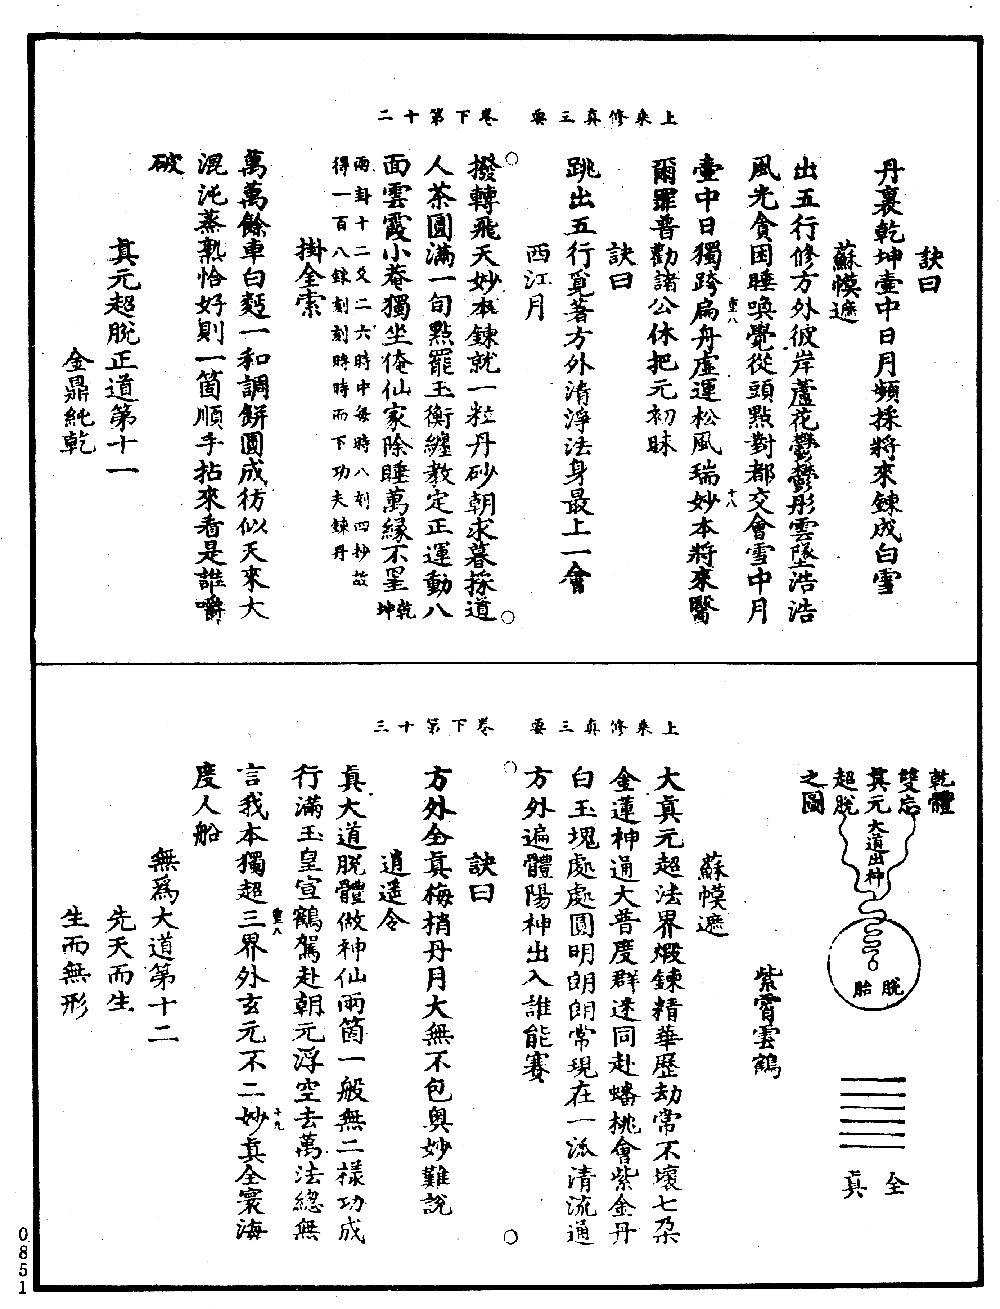 上乘修真三要　卷下第十二
訣曰
丹裏乾坤壷中日月頻採將來鍊成白雪
蘇幙遮
出五行修方外彼岸蘆花鬱鬱彤雲墜浩浩
風光貪困睡喚覺從頭點對都交會雪中月
壷中日獨跨扁舟虛運松風瑞妙本將來醫
重八
十八
爾羅普勸諸公休把元初昧
訣曰
跳出五行覓著方外清淨法身最上一會
西江月
撥轉飛天妙本鍊就一粒丹砂朝求暮採道
人茶圓滿一旬點罷玉衡纏教定正運動八
面雲霞小菴獨坐俺仙家除睡萬緣不罣乾坤
兩卦十二爻二六時中每時八刻四抄故
得一百八錬刻刻時時而下功夫錬丹
掛金索
萬萬餘車白麪一和調餅圓成彷似天來大
混沌蒸熟恰好則一箇順手拈來看是誰嚼
破
真元超脫正道第十一
金鼎純乾
上乘修真三要　卷下第十三
乾體
雙忘
真元
超脫
之圖
大道出神
脫胎
全真
紫霄雲鶴
蘇幙遮
大真元超法界煅鍊精華歷劫常不壞七朶
金蓮神通大普度群迷同赴蟠桃會紫金丹
白玉塊處處圓明朗朗常現在一泒清流通
方外遍體陽神出入誰能賽
訣曰
方外全真梅梢丹月大無不包奥妙難說
逍遥令
真大道脫體做神仙兩箇一般無二樣功成
行滿玉皇宣鶴駕赴朝元浮空去萬法總無
言我本獨超三界外玄元不二妙真全寰海
重八
十九
度人船
無爲大道第十二
先天而生
生而無形
0851